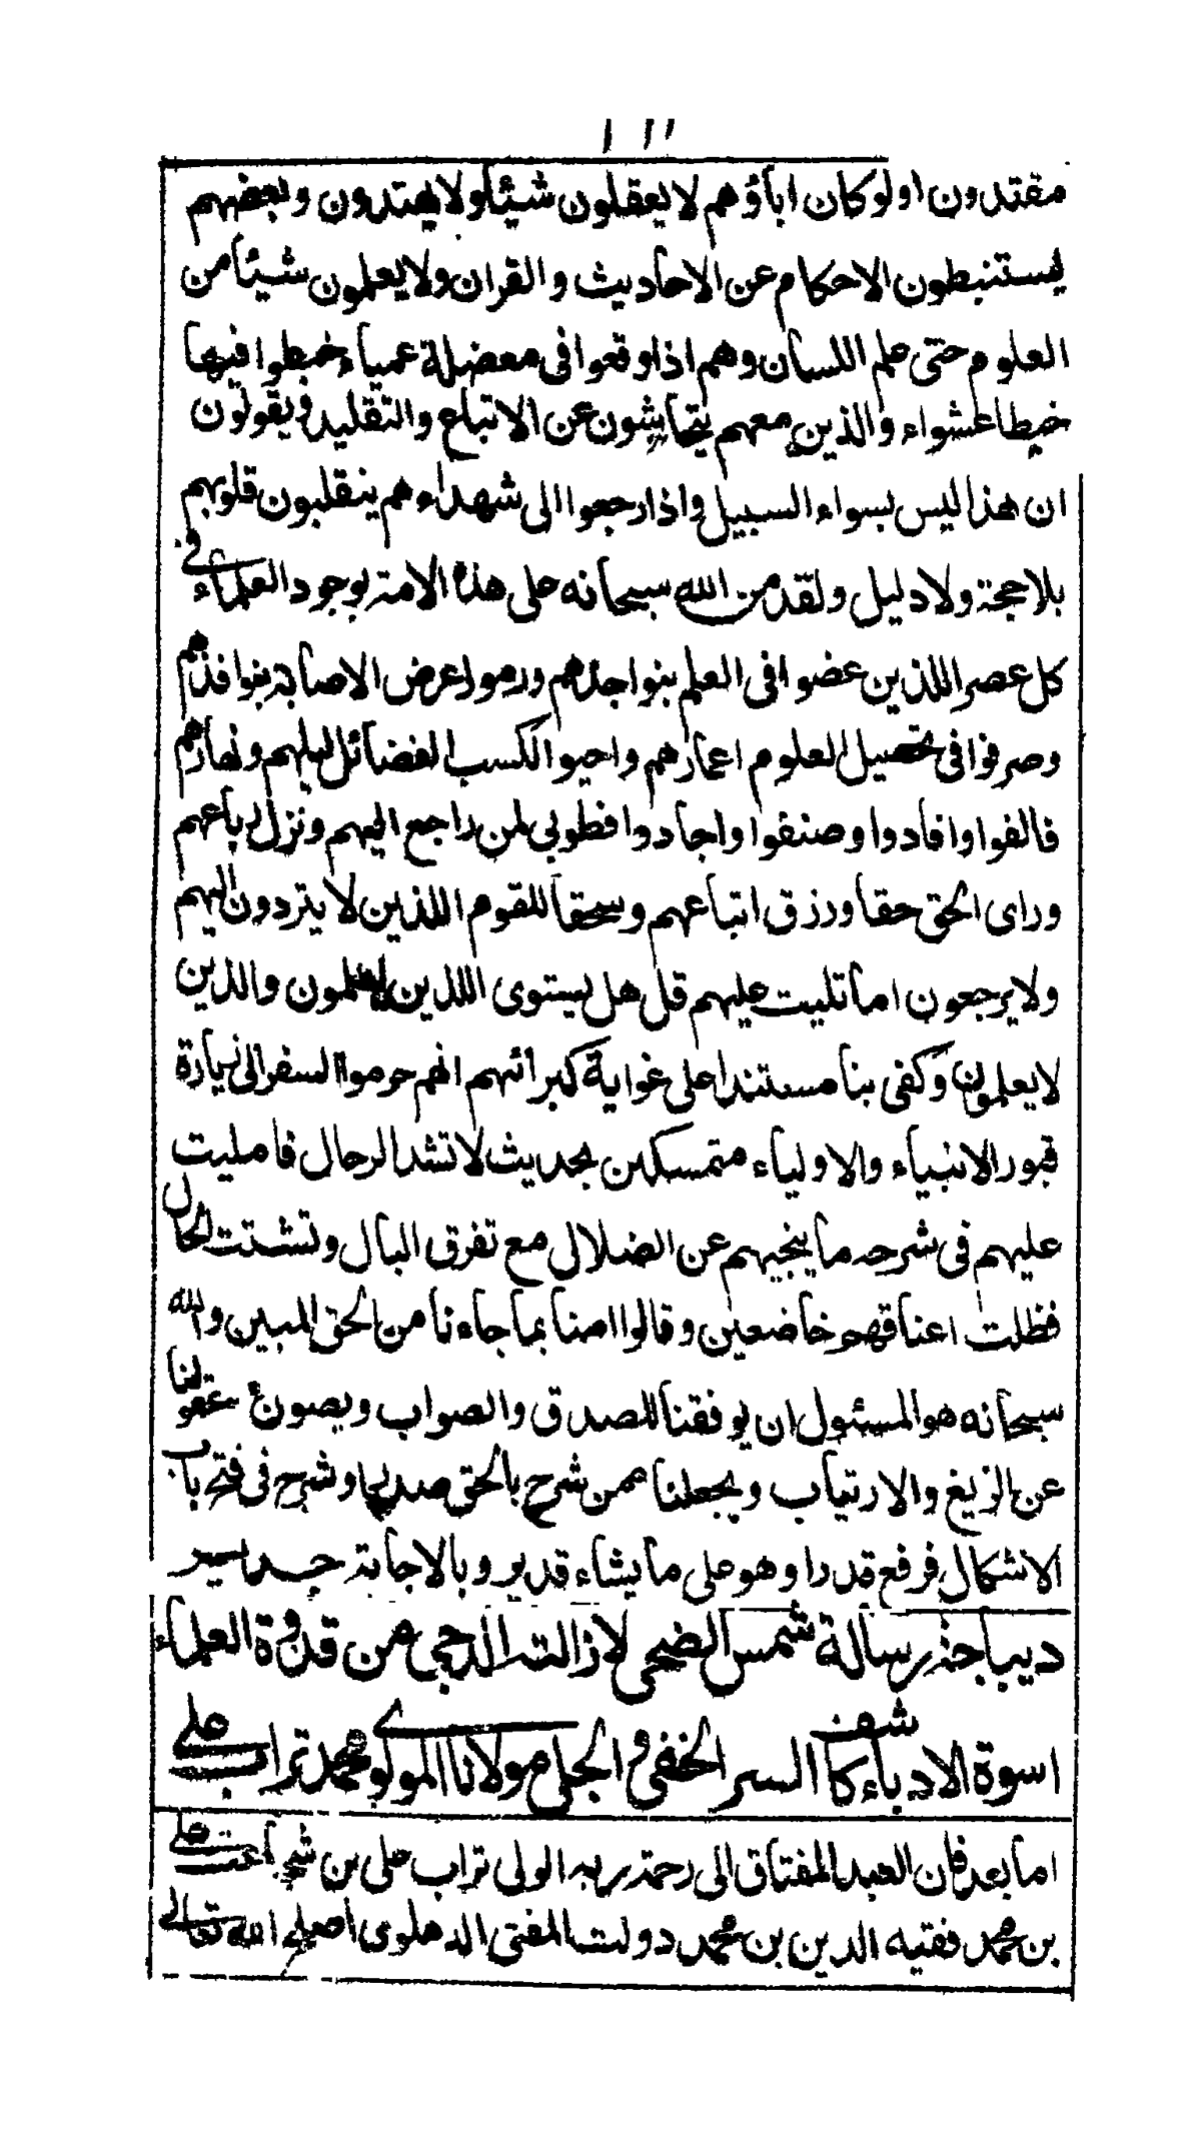 مقتدون اولو كان اباؤهم لا يعقلون شيئا ولا يهتدون وبعضهم
يستنبطون الاحكام عن الاحاديث والقران ولا يعلمون شيئا من
العلوم حتى علم اللسان وهم اذا وقعوا فى معضلة عمياء خبطوا فيها
خبط عشواء والذين معهم يتحاشون عن الاتباع والتقليد ويقولون
ان هذا ليس بسواء السبيل واذا رجعوا الى شهداءهم ينقلبون قلوبهم
بلا حجة ولا دليل ولقد من الله سبحانه على هذه الامة بوجود العلماء فى
كل عصر اللذين عضوا فى العلم بنواجذهم ورموا عرض الاصابة بنوافذهم
وصرفوا فى تحصيل العلوم اعمارهم واحيوا لكسب الفضائل ليلهم ونهارهم
فالفوا وافادوا وصنفوا واجادوا فطوبى لمن راجع اليهم ونزل رباعهم
وراى الحق حقا ورزق اتباعهم وسحقا للقوم اللذين لا يتردون اليهم
ولا يرجعون اما تليت عليهم قل هل يستوى اللذين يعلمون والذين
لا يعلمون وكفى بنا مستندا على غواية كبرائهم انهم حرموا السفر الى زيارة
قبور الانبياء والاولياء متمسكين بحديث لا تشد الرحال فامليت
عليهم فى شرحه ما ينجيهم عن الضلال مع تفرق البال وتشتت الحال
فظلت اعناقهم خاضعين وقالوا امنا بما جاءنا من الحق المبين والله
سبحانه هو المسئول ان يوفقنا للصدق والصواب ويصون عقولنا
عن الزيغ والارتياب ويجعلنا ممن شرح بالحق صدرا وشرح فى فتح باب
الاشكال فرفع قدرا وهو على ما يشاء قدير وبالاجابة جدير
ديباجة رسالة شمس الضحى لازالة الدجى من قدوة العلماء
اسوة الادباء كاشف السر الخفى والجلى مولانا المولوى محمد تراب على
اما بعد فان العبد المفتاق الى رحمة ربه الولى تراب على بن شجاعت على
بن محمد فقيه الدين بن محمد دولت المفتى الدهلوى اصلح الله تعالى